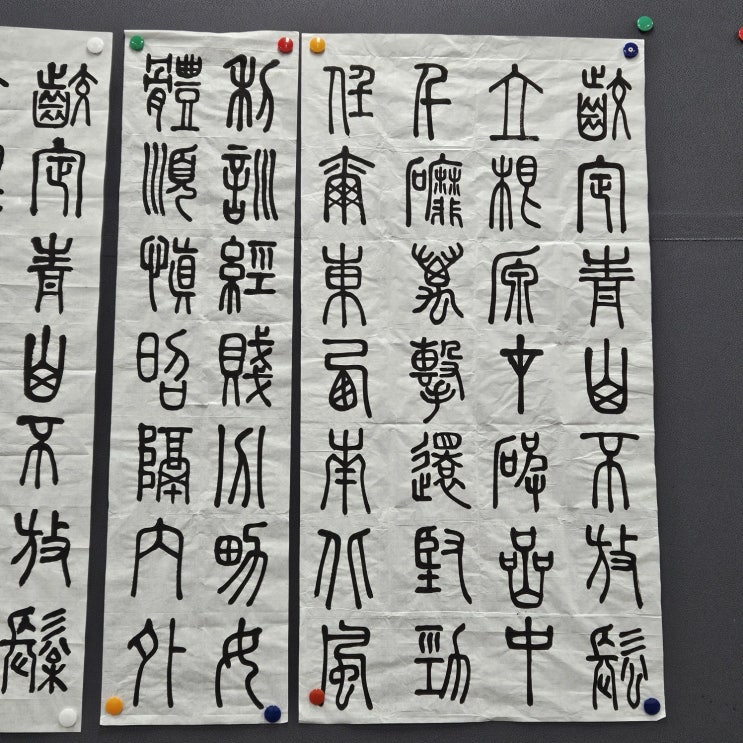 齩定青山不放鬆
立根原在破嵒中
千磨萬擊還堅勁
任爾東西南北風
利訓經賤分男女
體順慎昭隔內外
齩定青山不放鬆